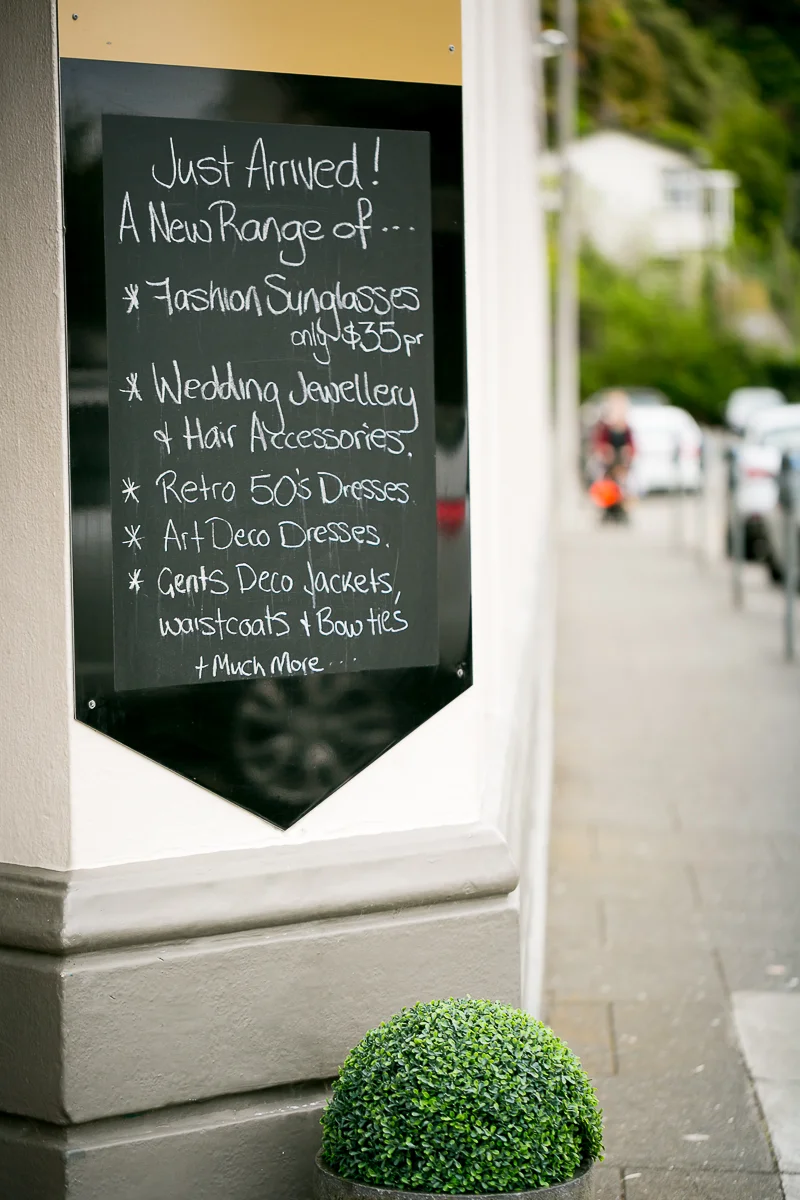 Just Arrived!
A New Range of...
* Fashion Sunglasses
only $35pr
* Wedding Jewellery
& Hair Accessories.
* Retro 50's Dresses
* Art Deco Dresses.
* Gents Deco Jackets,
waistcoats & Bow ties
+ Much More....